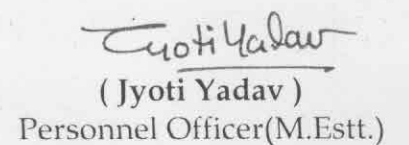 Jyoti Yadav
( Jyoti Yadav )
Personnel Officer(M.Estt.)